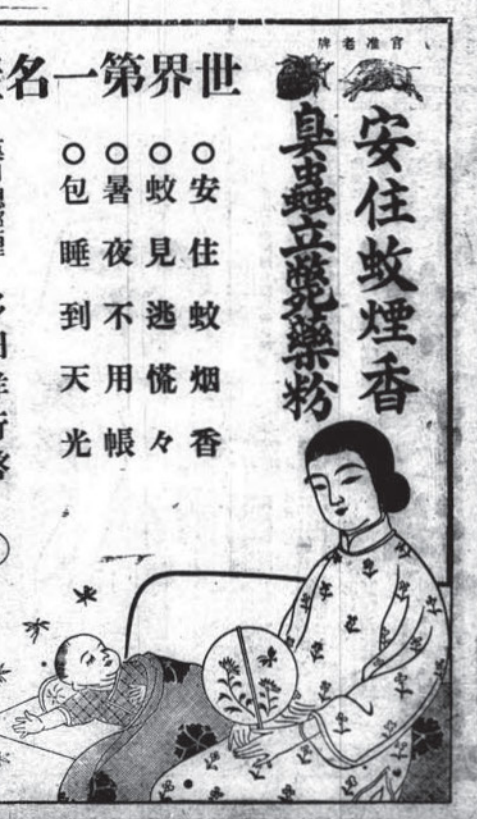 官准老牌
安住蚊煙香
臭蟲立斃藥粉
世界第一名
○安住蚊烟香
○蚊見逃慌々
○暑夜不用帳
○包睡到天光